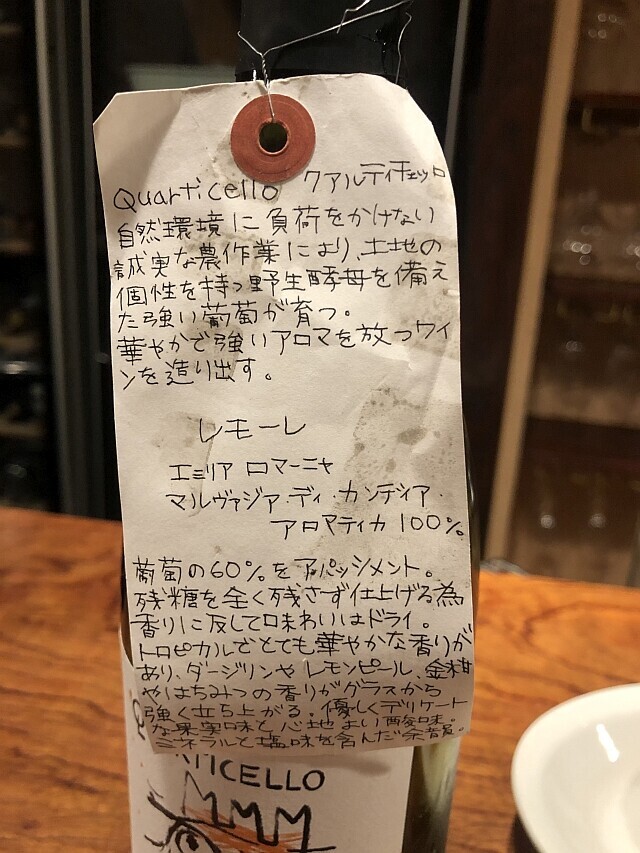 Quarticello クアルティチェッロ
自然環境に負荷をかけない
誠実な農作業により、土地の
個性を持つ野生酵母を備え
た強い葡萄が育つ。
華やかで強いアロマを放つワイ
ンを造り出す。
レモーレ
エミリア ロマーニャ
マルヴァジア・ディ・カンディア・
アロマティカ 100%
葡萄の60%をアパッシメント。
残糖を全く残さず仕上げる為
香りに反して味わいはドライ。
トロピカルでとても華やかな香りが
あり、ダージリンやレモンピール、金柑
やはちみつの香りがグラスから
強く立ち上がる。優しくデリケート
な果実味と心地よい酸味。
ミネラルと塩味を含んだ余韻。
RTICELLO